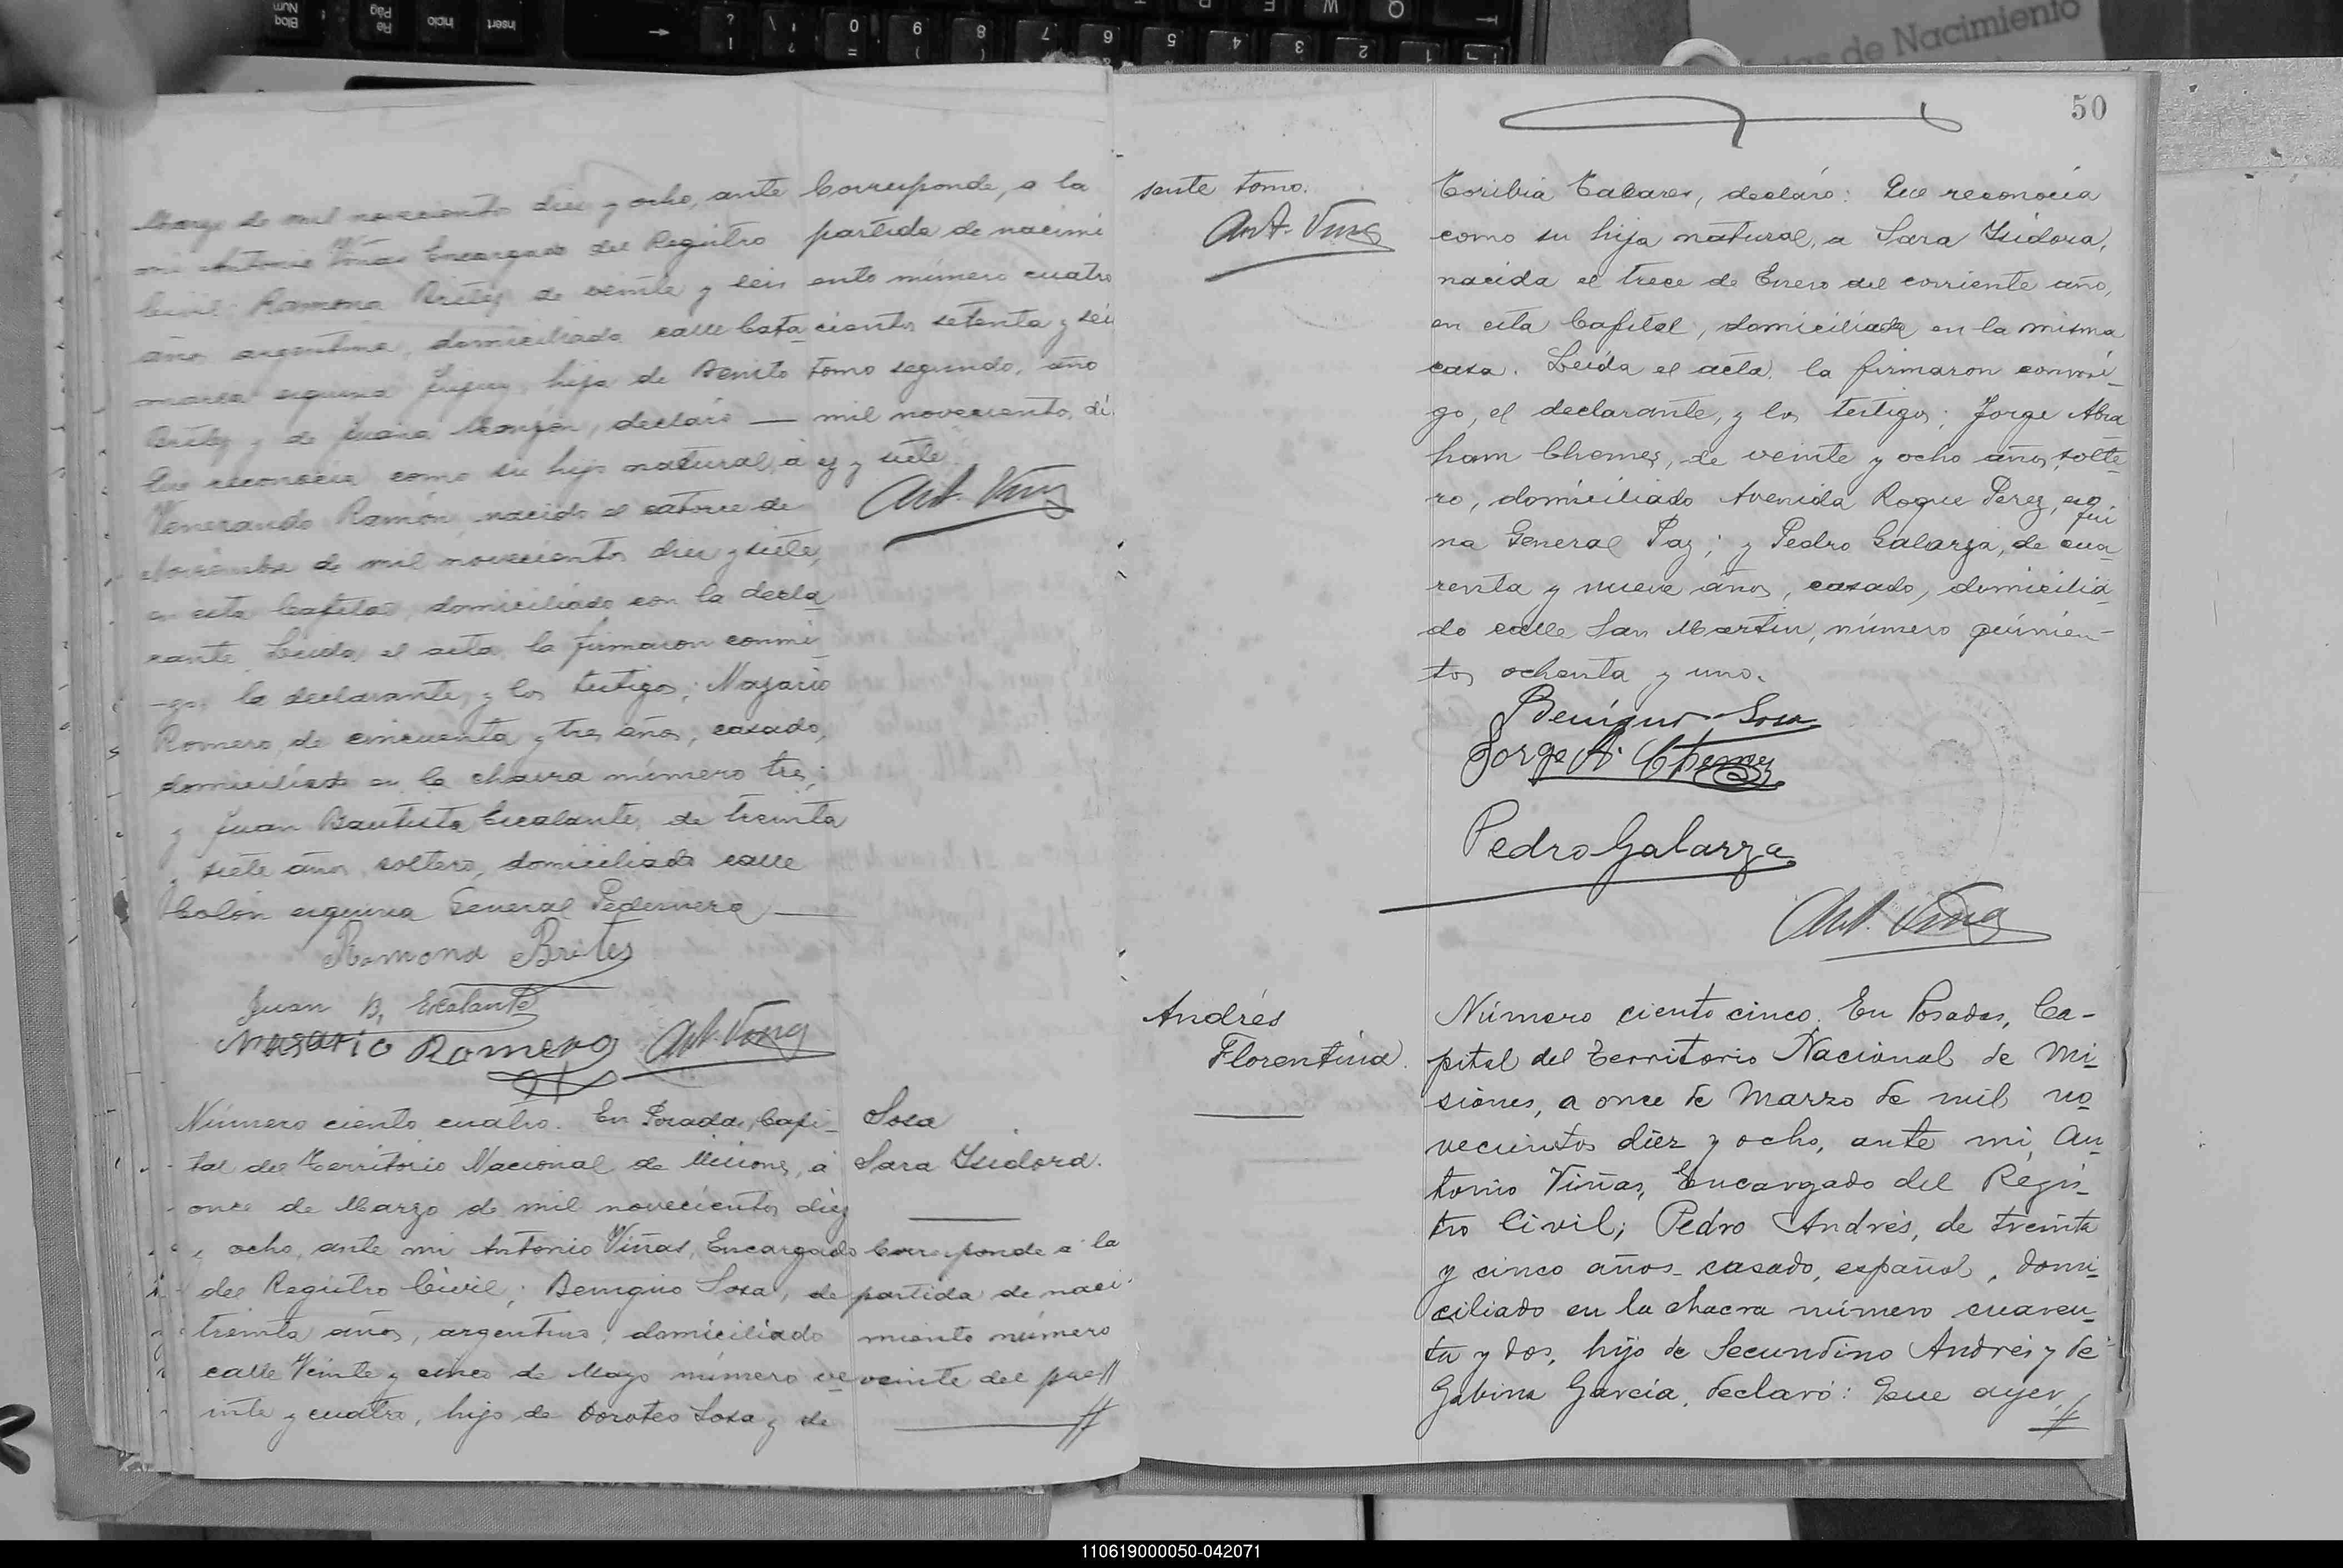 Marzo de mil novecientos diez y ocho, ante
mi Antonio Viñas Encargado del Registro
Civil: Ramona Britez de veinte y seis
años argentina, domiciliada calle Cata
marca esquina Jujuy, hija de Benito
Britez y de Juana Monzón, declaró —
Que reconocía como su hijo natural, á
Venerando Ramón, nacido el catorce de
Noviembre de mil novecientos diez y siete,
en esta Capital, domiciliado con la decla
rante. Leida el acta, la firmaron conmi
-go, la declarante, y los testigos; Nazario
Romero, de cincuenta y tres años, casado,
domiciliado en la chacra número tres;
y Juan Bautista Escalante, de treinta
y siete años, soltero, domiciliado calle
Colón esquina General Pedernera —
Ramona Brites
Juan B. Escalante
Nasario Romero Ant. Viñas
Corresponde, a la
partida de nacimi
ento número cuatro
cientos setenta y seis
tomo segundo, año
mil novecientos, di
ez y siete.
Ant. Viñas
Número ciento cuatro. En Posadas, Capi-
tal del Territorio Nacional de Misiones, á
once de Marzo de mil novecientos diez
y ocho, ante mi Antonio Viñas, Encargado
del Registro Civil; Benigno Sosa, de
treinta años, argentino, domiciliado
calle Veinte y cinco de Mayo número ve
inte y cuatro, hijo de Doroteo Sosa y de
Sosa
Sara Isidora.
Corresponde a la
partida de naci
miento número
veinte del pre//
50
sente tomo.
Ant. Viñas
Toribia Tabares, declaró: Que reconocía
como su hija natural, a Sara Isidora,
nacida el trece de Enero del corriente año,
en esta Capital, domiciliada en la misma
casa. Leída el acta, la firmaron conmi-
go, el declarante, y los testigos; Jorge Abra
ham Chemes, de veinte y ocho años, solte-
ro, domiciliado Avenida Roque Perez, es
qui
na General Paz; y Pedro Galarza, de cua
renta y nueve años, casado, domicilia-
do calle San Martin, número quinien-
tos ochenta y uno.
Benigno Sosa
Jorge A. Chemes
Pedro Galarza
Ant. Viñas
Andrés
Florentina.
Número ciento cinco. En Posadas, Ca-
pital del Territorio Nacional de Mi-
siones, a once de Marzo de mil no
vecientos diez y ocho, ante mi, An-
tonio Viñas, Encargado del Regis-
tro Civil; Pedro Andrés, de treinta
y cinco años casado, español, domi-
ciliado en la chacra número cuaren-
ta y dos, hijo de Secundino Andrés y de
Gabina García, declaró: Que ayer,
//
110619000050-042071